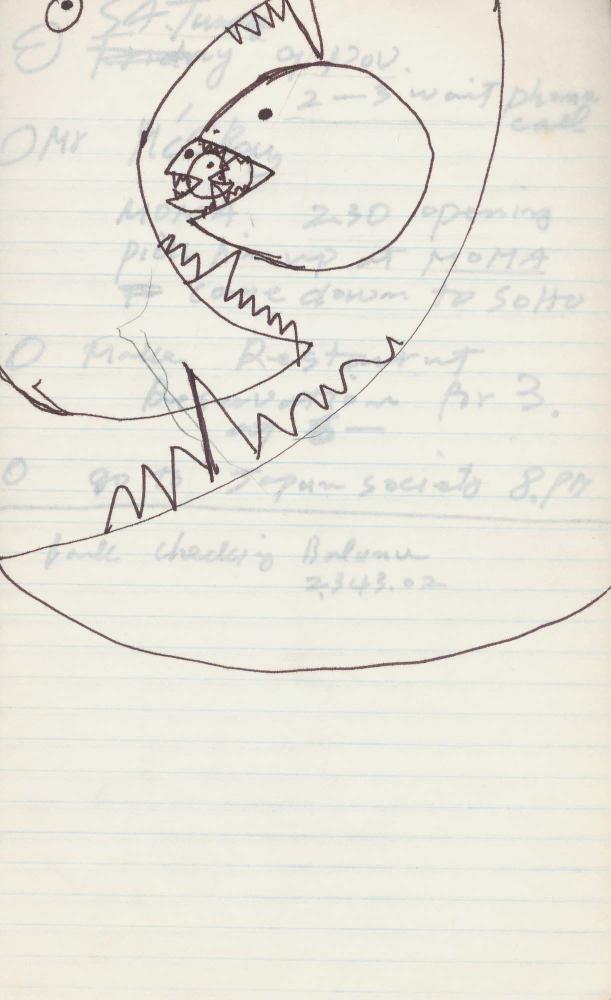 SAT.
2 — 3 wait phone
call
Mr
MOMA 2.30 opening
pick up at MOMA
come down to SoHo
Make Restaurant
Reservation for 3.
go to Japan society 8.PM
bank checking Balance
2,343.02